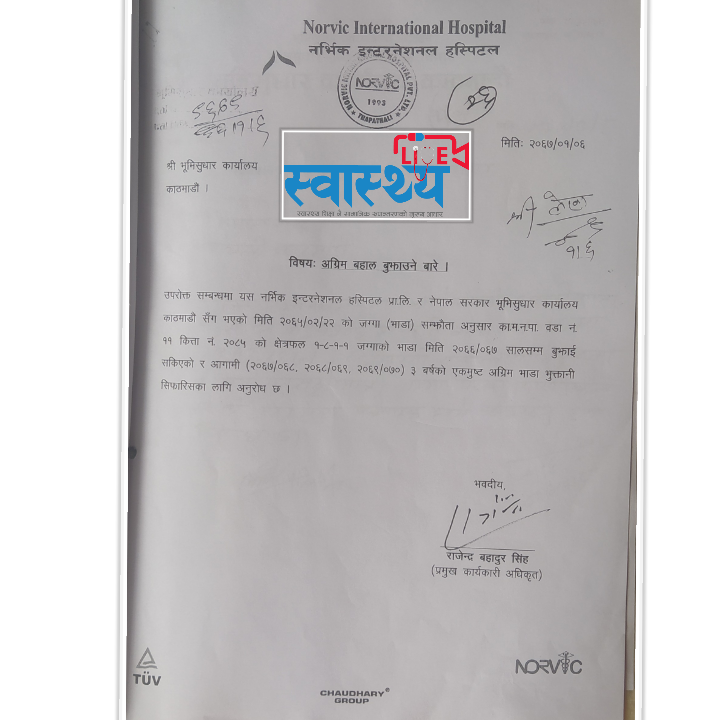 Norvic International Hospital
नर्भिक इन्टरनेशनल हस्पिटल
NORVIC
1993
THAPATHALI
मितिः २०६७/०१/०६
श्री भूमिसुधार कार्यालय
काठमाडौं ।
LIVE
स्वास्थ्य
श्री
विषयः अग्रिम बहाल बुझाउने बारे ।
उपरोक्त सम्बन्धमा यस नर्भिक इन्टरनेशनल हस्पिटल प्रा.लि. र नेपाल सरकार भूमिसुधार कार्यालय
काठमाडौं सँग भएको मिति २०६५/०२/२२ को जग्गा (भाडा) सम्झौता अनुसार का.म.न.पा. वडा नं.
११ कित्ता नं. २०८५ को क्षेत्रफल १-८-१-१ जग्गाको भाडा मिति २०६६/०६७ सालसम्म बुझाई
सकिएको र आगामी (२०६७/०६८, २०६८/०६९, २०६९/०७०) ३ बर्षको एकमुष्ट अग्रिम भाडा भुक्तानी
सिफारिसका लागि अनुरोध छ ।
भवदीय,
राजेन्द बहादुर सिंह
(प्रमुख कार्यकारी अधिकृत)
TÜV
NORVIC
CHAUDHARY®
GROUP